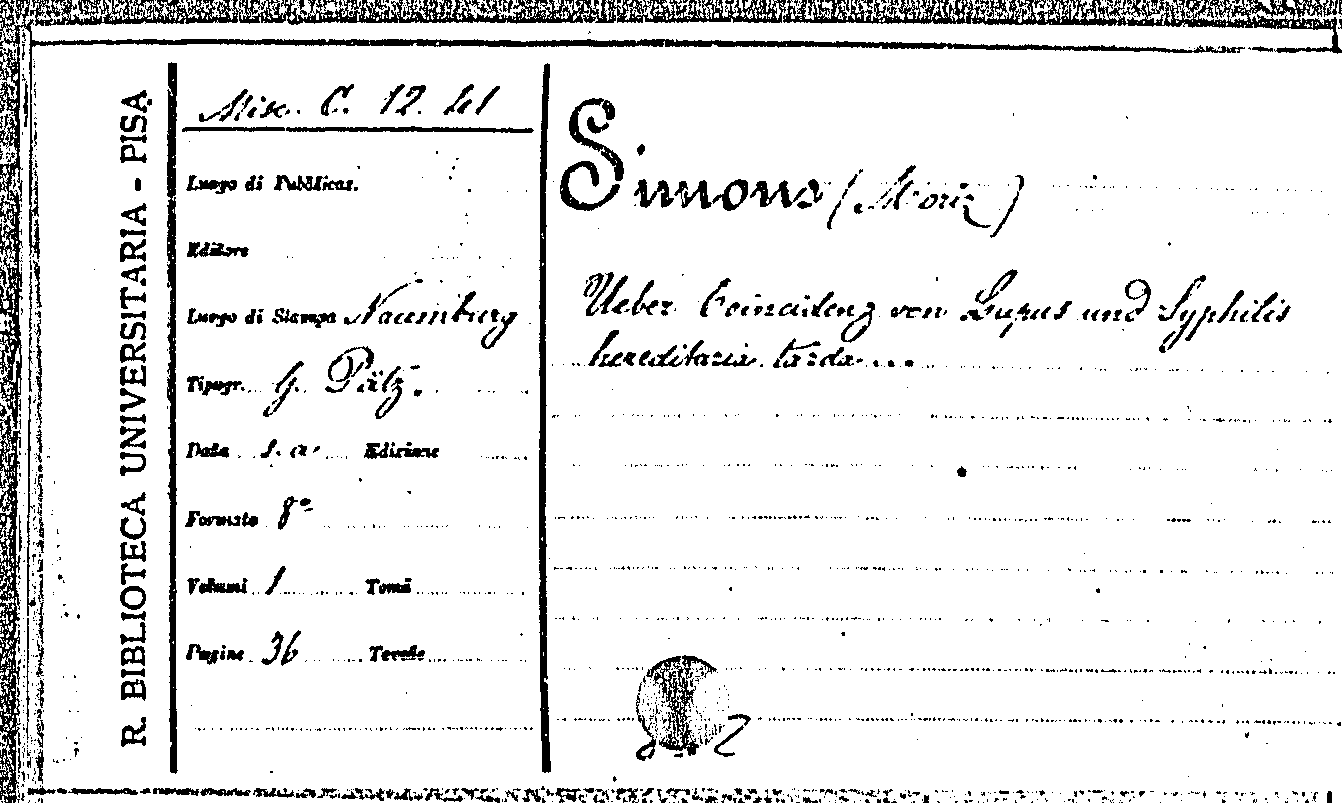 R. BIBLIOTECA UNIVERSITARIA - PISA
Misc. C. 12. 41
Luogo di Pubblicaz.
Editore
Luogo di Stampa Naumburg
Tipogr. G. Pätz.
Data s. a. Edizione
Formato 8º
Volumi 1 Tomi
Pagine 36 Tavole
Simons (Moriz)
Ueber Coincidenz von Lupus und Syphilis
hereditaria tarda...